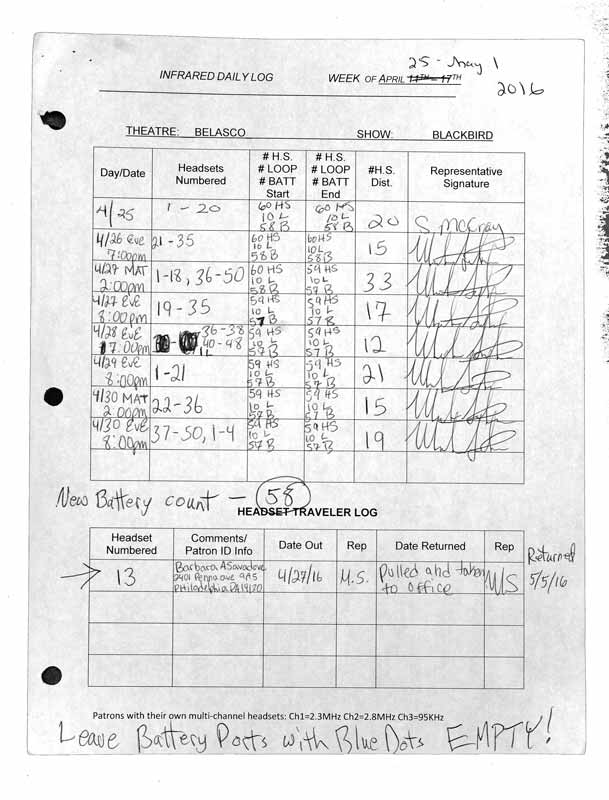 25 - May 1
INFRARED DAILY LOG WEEK OF APRIL 11TH – 17TH
2016
THEATRE: BELASCO SHOW: BLACKBIRD
Day/Date Headsets Numbered # H.S. # LOOP # BATT Start # H.S. # LOOP # BATT End #H.S. Dist. Representative Signature
4/25 1 - 20 60 HS 10 L 58 B 60 HS 10 L 58 B 20 S. McCray
4/26 Eve 7:00pm 21-35 60 HS 10 L 58 B 60 HS 10 L 58 B 15
4/27 MAT 2:00pm 1-18, 36-50 60 HS 10 L 58 B 59 HS 10 L 57 B 33
4/27 EVE 8:00pm 19-35 59 HS 10 L 57 B 59 HS 10 L 57 B 17
4/28 EvE 7:00pm 36-38 40-48 1L 59 HS 10 L 57 B 59 HS 10 L 57 B 12
4/29 EVE 8:00pm 1-21 59 HS 10 L 57 B 59 HS 10 L 57 B 21
4/30 MAT 2:00pm 22-36 59 HS 10 L 57 B 59 HS 10 L 57 B 15
4/30 EVE 8:00pm 37-50, 1-4 59 HS 10 L 57 B 59 HS 10 L 57 B 19
New Battery count - 58
HEADSET TRAVELER LOG
Headset Numbered Comments/ Patron ID Info Date Out Rep Date Returned Rep
13 Barbara A 2401 Penna ave Philadelphia PA 4/27/16 M.S. Pulled and taken to office M/S Returned 5/5/16
Patrons with their own multi-channel headsets: Ch1=2.3MHz Ch2=2.8MHz Ch3=95KHz
Leave Battery Ports with Blue Dots EMPTY!